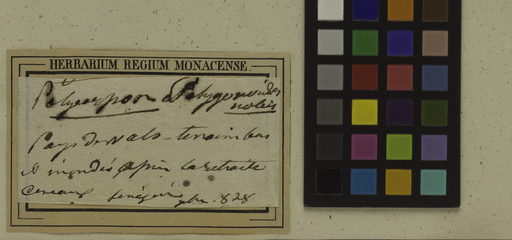 HERBARIUM REGIUM MONACENSE.
Polycarpon Polygonoides
nobis
Pays de Walo - terrain bas
& inondés après la retraite
des eaux Sénégal
1828